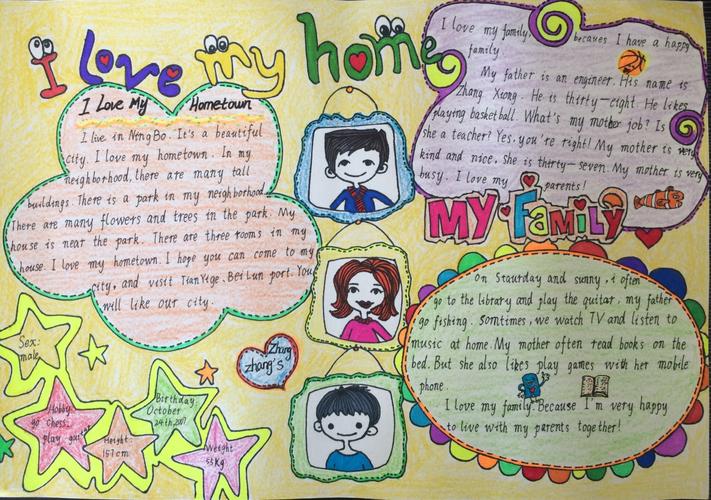 I love my home
I Love My Hometown
I live in NingBo. It's a beautiful
city. I love my hometown. In my
neighborhood, there are many tall
buildings. There is a park in my neighborhood.
There are many flowers and trees in the park. My
house is near the park. There are three rooms in my
house. I love my hometown. I hope you can come to my
city, and visit TianYige. BeiLun port. You
will like our city.
I love my family, becaues I have a happy
family.
My father is an engineer. His name is
Zhang Xiong. He is thirty-eight. He likes
playing basketball. What's my mother job? Is
she a teacher? Yes, you're right! My mother is very
kind and nice. She is thirty-seven. My mother is very
busy. I love my parents!
My Family
On Staurday and sunny, i often
go to the library and play the guitar, my father
go fishing. Somtimes, we watch TV and listen to
music at home. My mother often read books on the
bed. But she also likes play games with her mobile
phone.
I love my family. Because I'm very happy
to live with my parents together!
Zhang
zhang's
Sex:
male
Hobby
go chess.
play guitar
Height:
157cm
Birthday:
October
24th,2007
Weight
55Kg